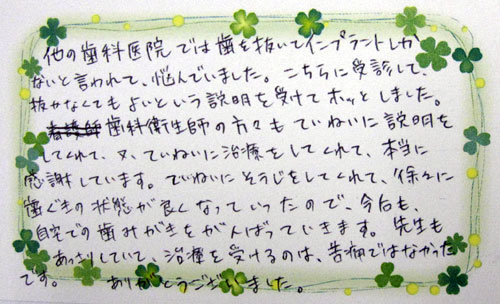 他の歯科医院では歯を抜いてインプラントしか
ないと言われて、悩んでいました。こちらに受診して、
抜かなくてもよいという説明を受けてホッとしました。
歯科衛生師の方々もていねいに説明を
してくれて、又、ていねいに治療をしてくれて、本当に
感謝しています。ていねいにそうじをしてくれて、徐々に
歯ぐきの状態が良くなっていったので、今后も、
自宅での歯みがきをがんばっていきます。先生も
あっさりしていて、治療を受けるのは、苦痛ではなかった
です。 ありがとうございました。